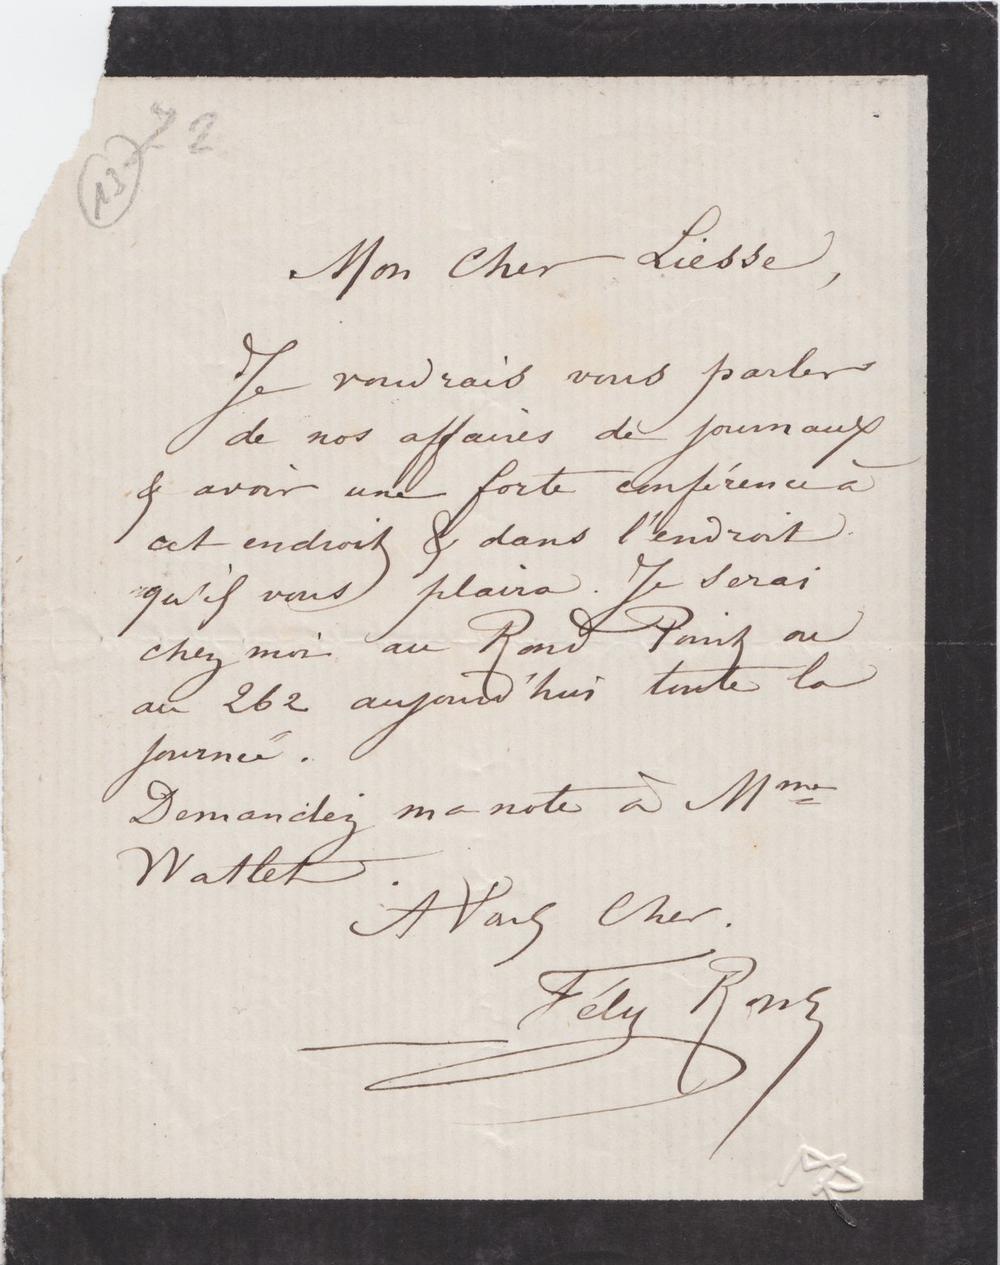 22
13
Mon Cher Liesse,
Je voudrais vous parler
de nos affaires de journaux
& avoir une forte conférence à
cet endroit & dans l'endroit
qu'il vous plaira. Je serai
chez moi au Rond Point ou
au 262 aujourd'hui toute la
journée.
Demandez ma note à Mme
Watlet.
A Vous Cher.
Fély Rops